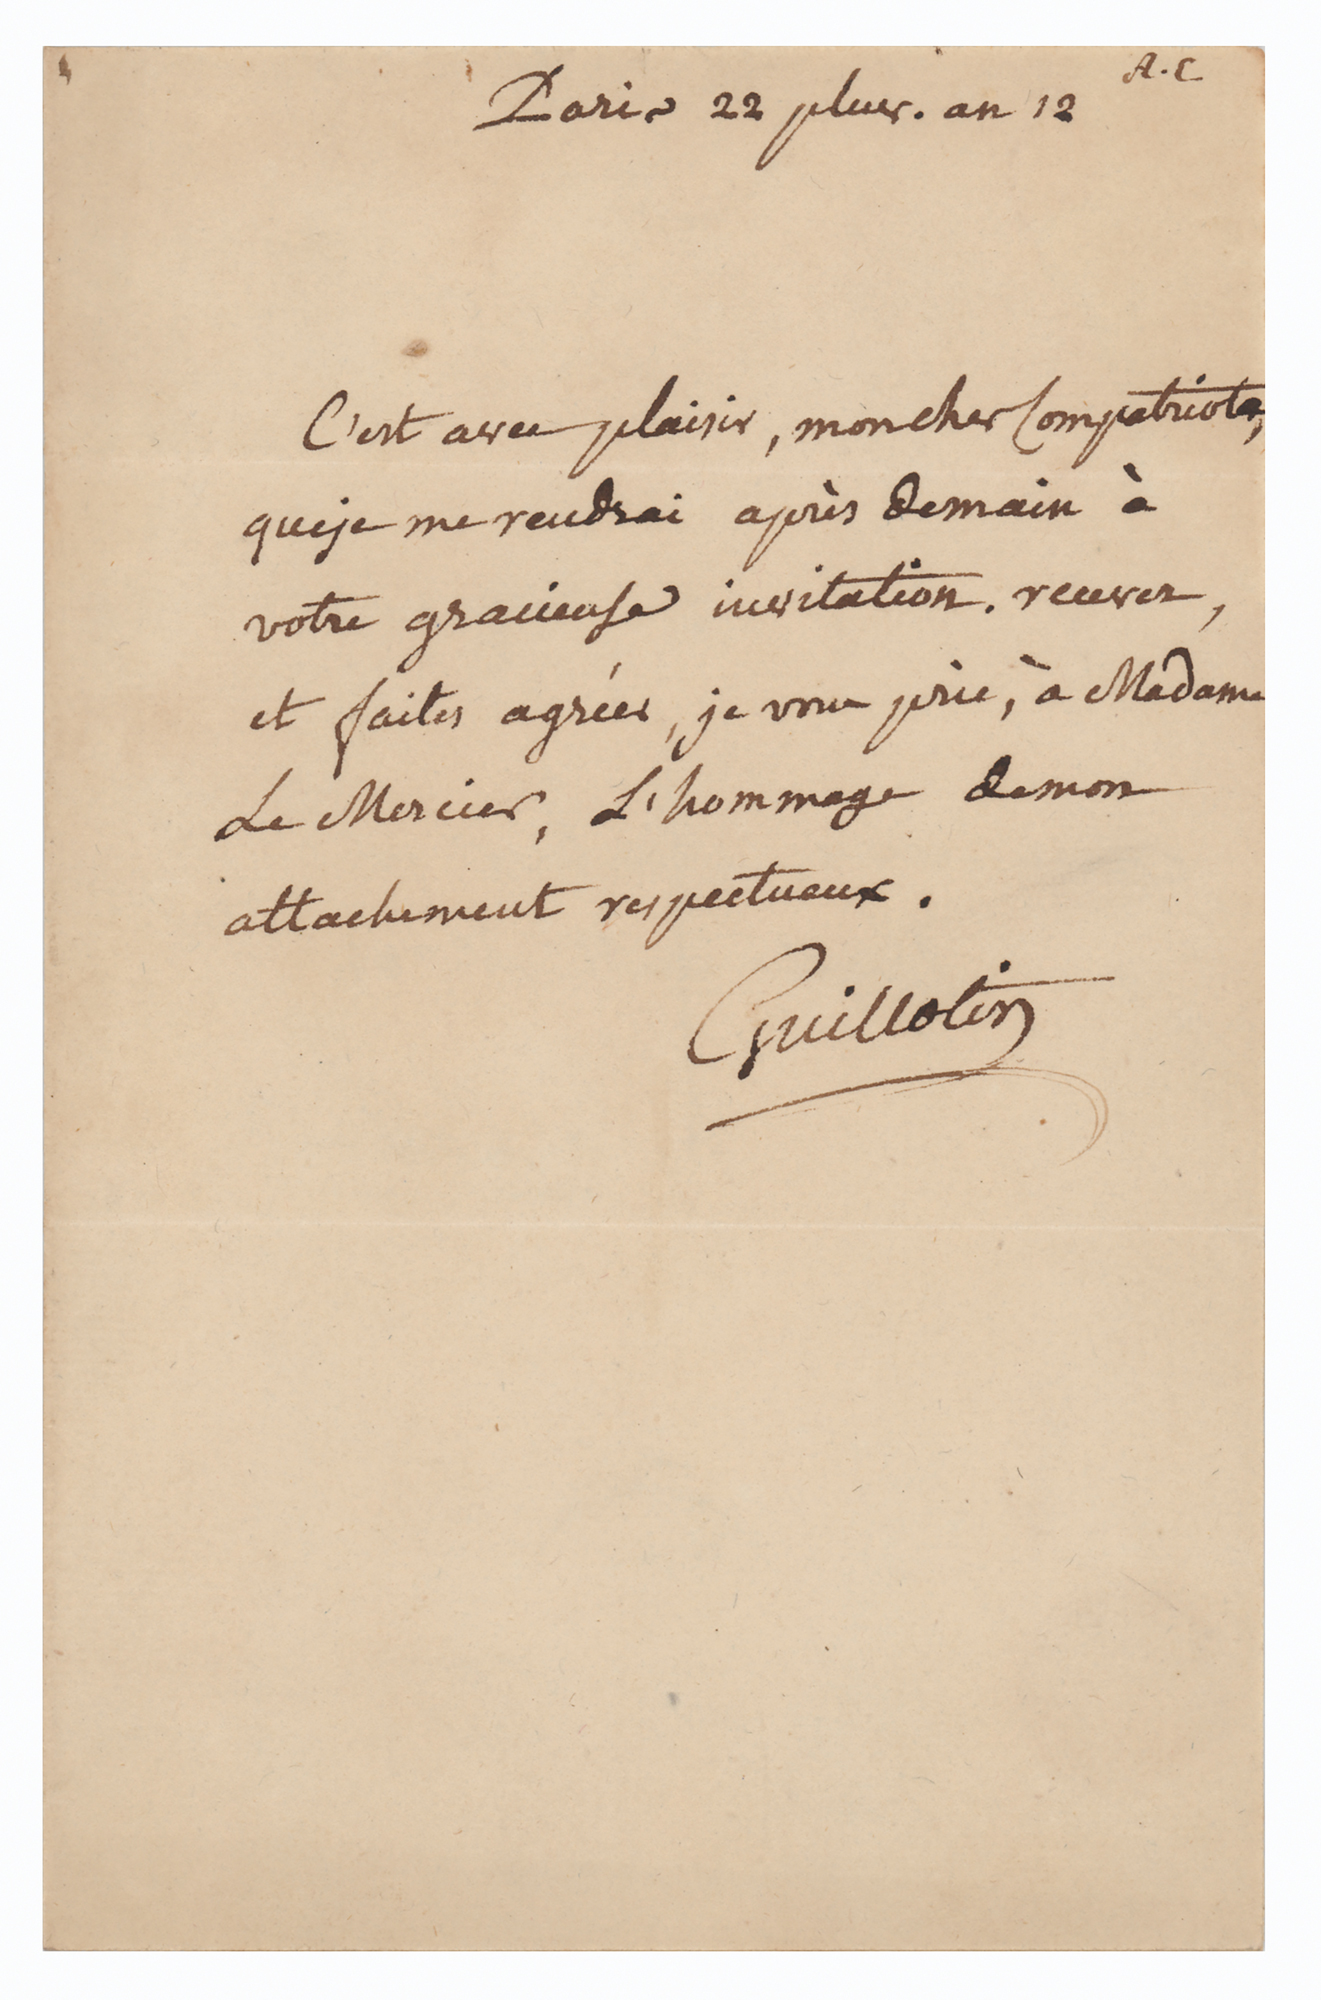 A.C
Paris 22 pluv. an 12
C'est avec plaisir, mon cher Compatriote,
que je me rendrai après demain à
votre gracieuse invitation. recevez,
et faites agréer, je vous prie, à Madame
Le Mercier, L'hommage de mon
attachement respectueux.
Guillotin